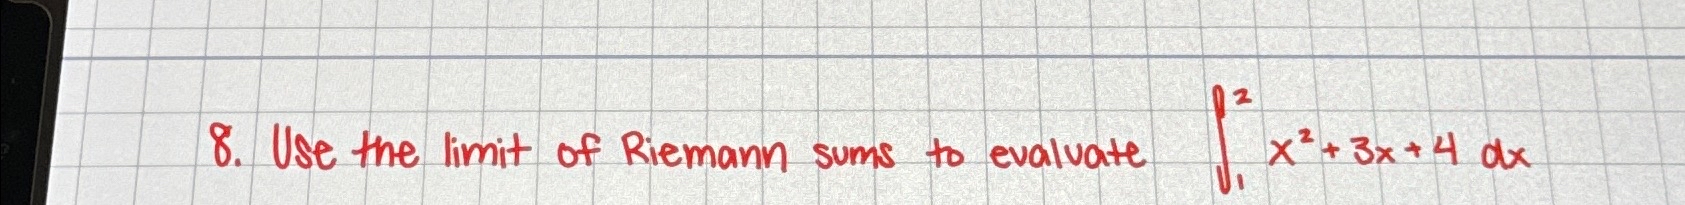 8. Use the limit of Riemann sums to evaluate ∫₁² x² + 3x + 4 dx